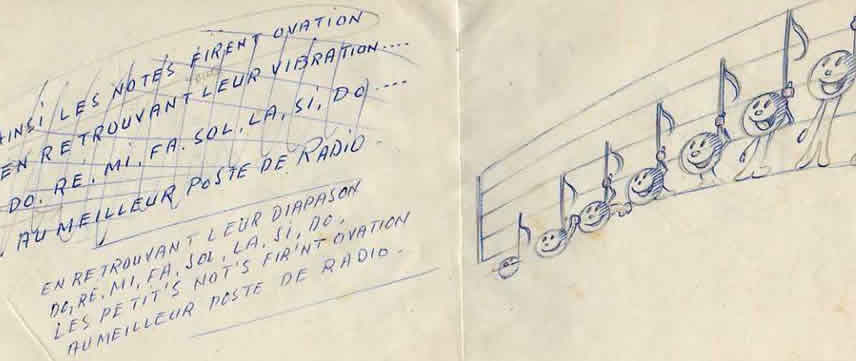 AINSI LES NOTES FIRENT OVATION
EN RETROUVANT LEUR VIBRATION....
DO. RÉ. MI. FA. SOL. LA. SI. DO....
AU MEILLEUR POSTE DE RADIO.
EN RETROUVANT LEUR DIAPASON
DO, RÉ, MI, FA, SOL, LA, SI, DO,
LES PETIT'S NOT'S FIR'NT OVATION
AU MEILLEUR POSTE DE RADIO.